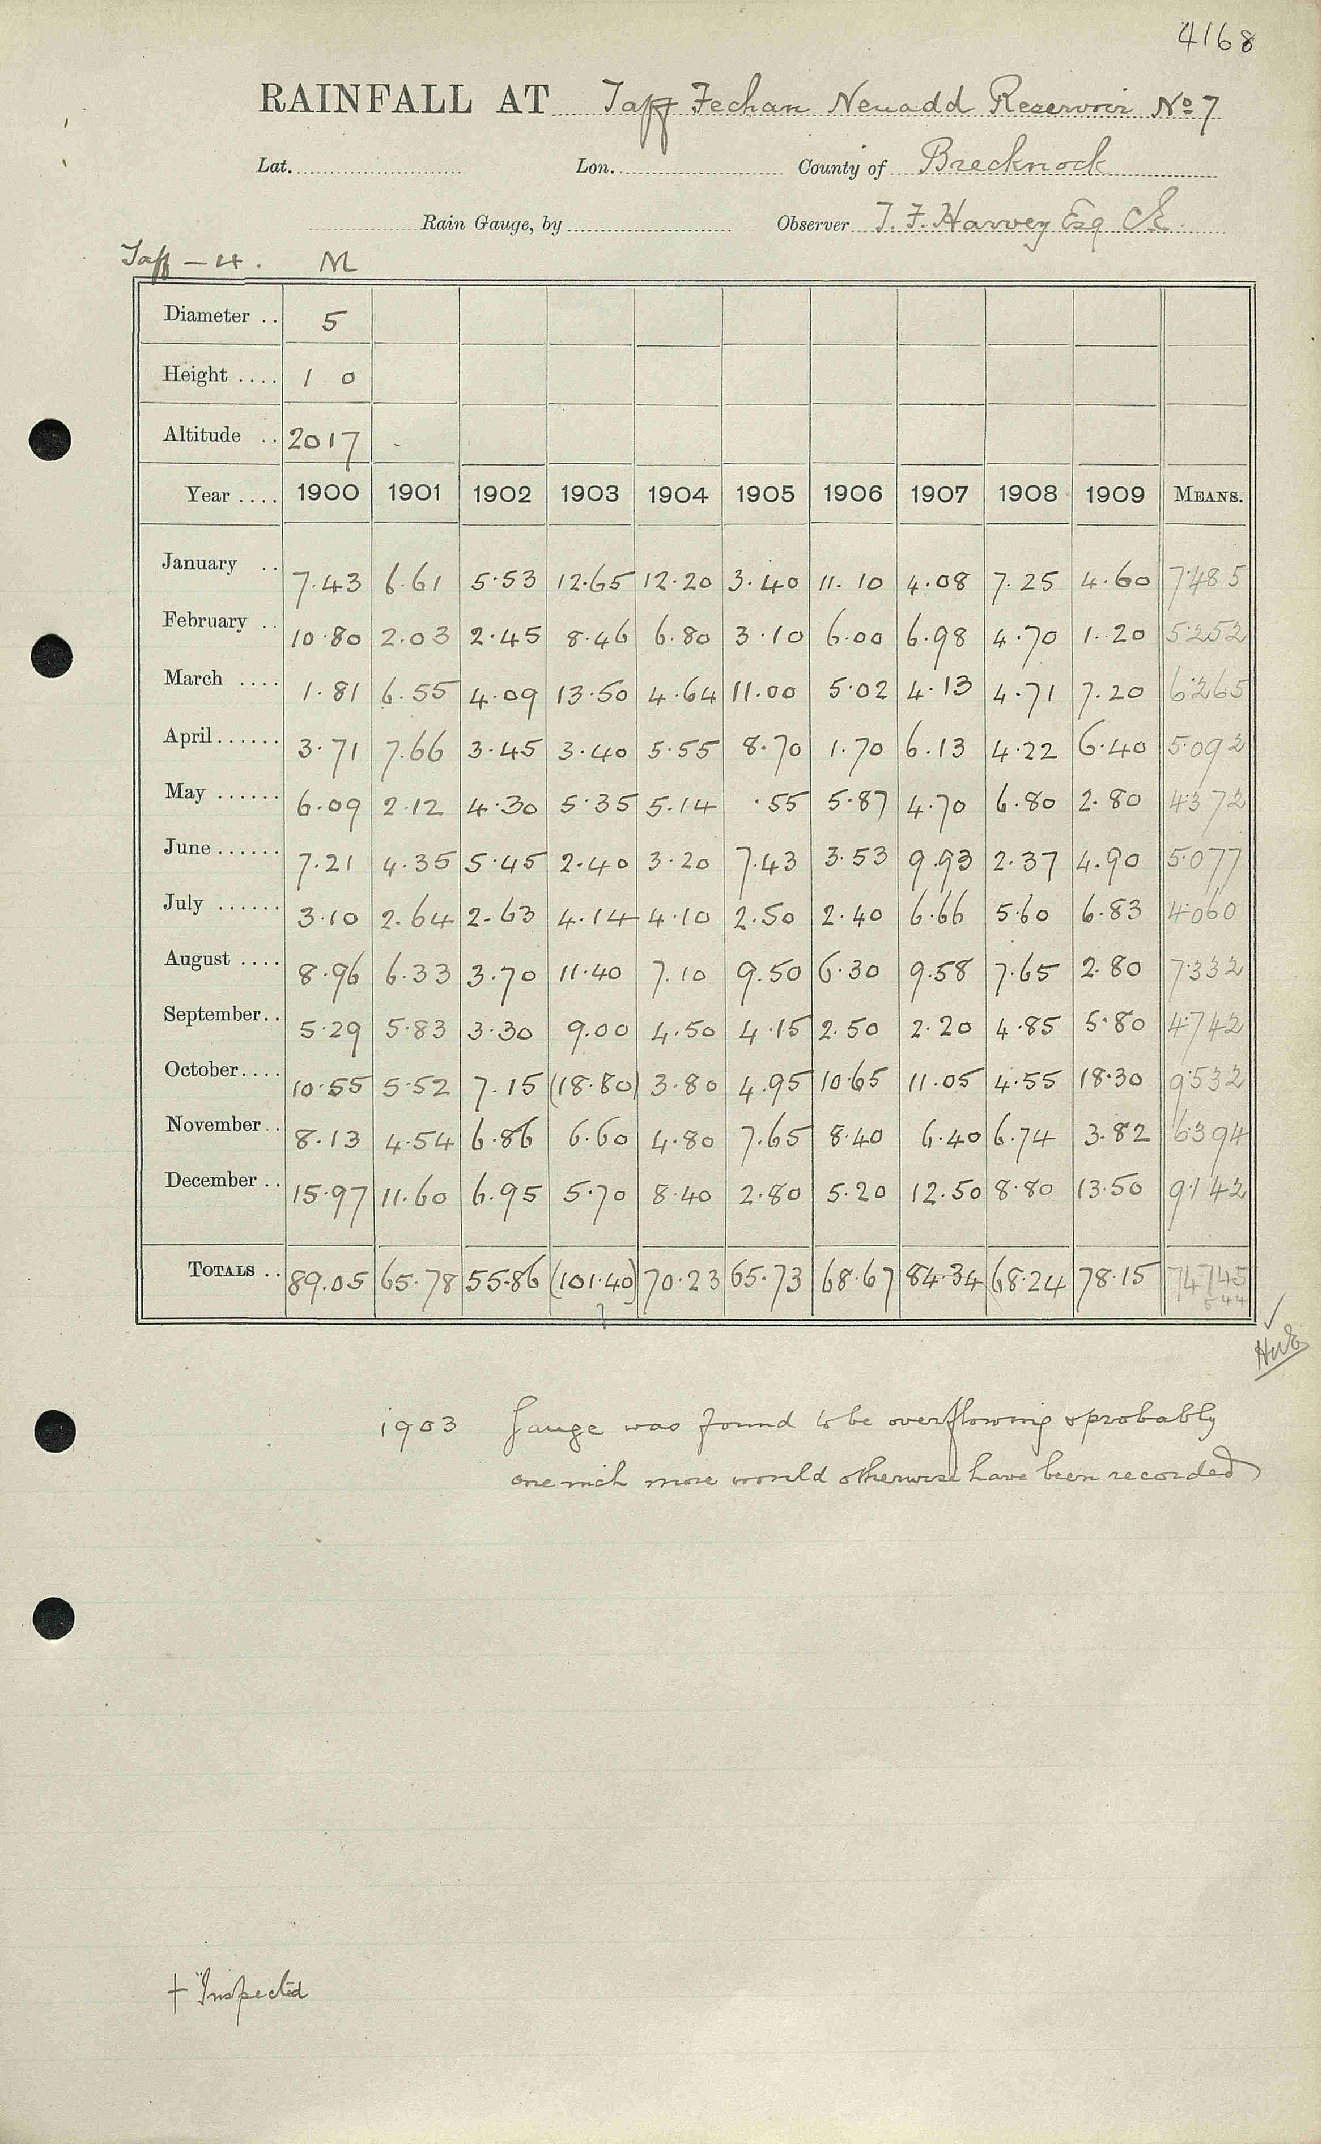 4168
RAINFALL AT Taff Fechan Neuadd Reservoir No 7
Lat. Lon. County of Brecknock
Rain Gauge, by Observer T. F. Harvey Esq CE
Taff – 4. M
Diameter .. 5
Height .... 1 0
Altitude .. 2017
Year .... 1900 1901 1902 1903 1904 1905 1906 1907 1908 1909 MEANS.
January .. 7.43 6.61 5.53 12.65 12.20 3.40 11.10 4.08 7.25 4.60 7.485
February .. 10.80 2.03 2.45 8.46 6.80 3.10 6.00 6.98 4.70 1.20 5.252
March .... 1.81 6.55 4.09 13.50 4.64 11.00 5.02 4.13 4.71 7.20 6.265
April...... 3.71 7.66 3.45 3.40 5.55 8.70 1.70 6.13 4.22 6.40 5.092
May ...... 6.09 2.12 4.30 5.35 5.14 .55 5.87 4.70 6.80 2.80 4.372
June...... 7.21 4.35 5.45 2.40 3.20 7.43 3.53 9.93 2.37 4.90 5.077
July ...... 3.10 2.64 2.63 4.14 4.10 2.50 2.40 6.66 5.60 6.83 4.060
August .... 8.96 6.33 3.70 11.40 7.10 9.50 6.30 9.58 7.65 2.80 7.332
September.. 5.29 5.83 3.30 9.00 4.50 4.15 2.50 2.20 4.85 5.80 4.742
October.... 10.55 5.52 7.15 (18.80) 3.80 4.95 10.65 11.05 4.55 18.30 9.532
November.. 8.13 4.54 6.86 6.60 4.80 7.65 8.40 6.40 6.74 3.82 6394
December .. 15.97 11.60 6.95 5.70 8.40 2.80 5.20 12.50 8.80 13.50 9.142
TOTALS .. 89.05 65.78 55.86 (101.40) 70.23 65.73 68.67 84.34 68.24 78.15 74745
?
1903 Gauge was found to be overflowing & probably
one inch more would otherwise have been recorded
+ Inspected